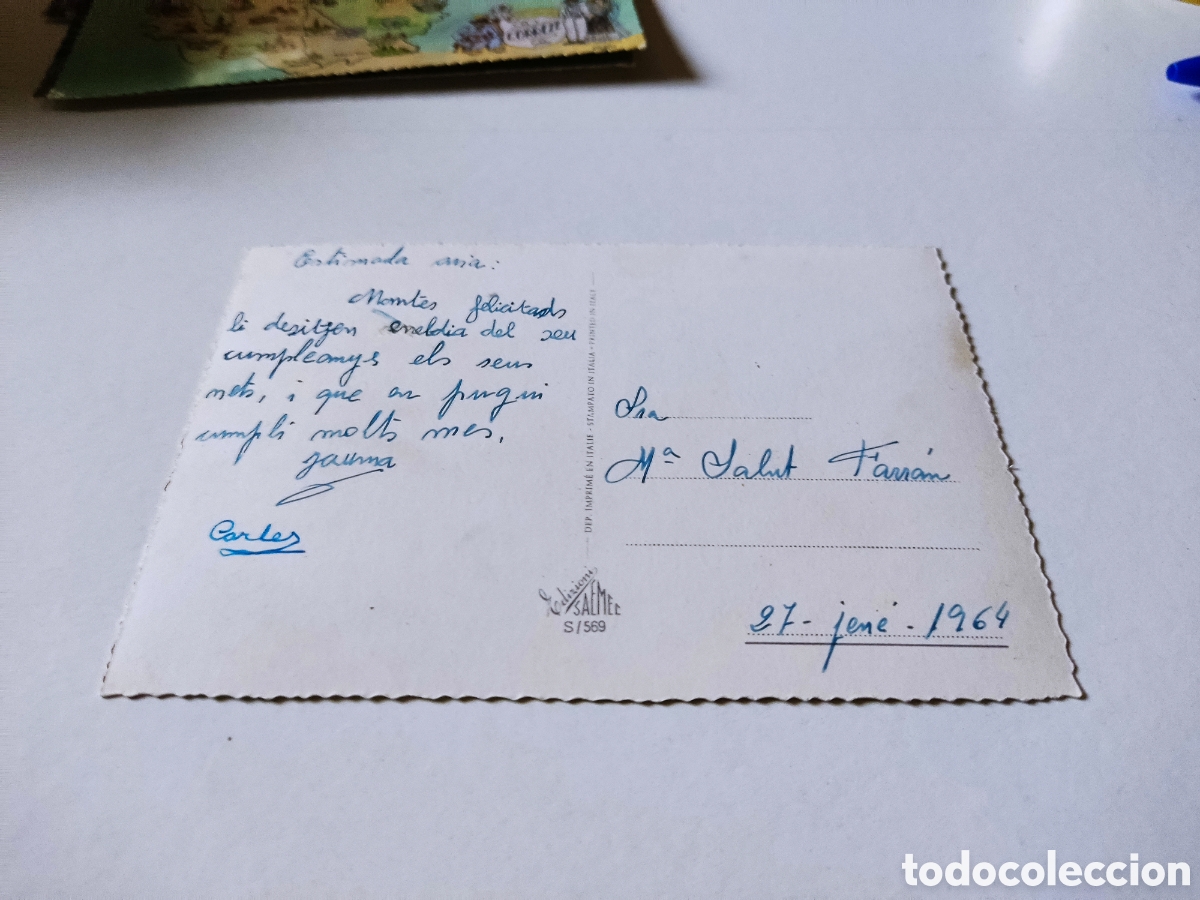 Estimada avia:
Momtes felicitads
li desitjen eneldia del seu
cumpleanys els seus
nets, i que en pugui
cumpli molts mes.
Jauma
Carles
DEP. IMPRIMÉ EN ITALIE - STAMPATO IN ITALIA - PRINTED IN ITALY
Edizioni
SAEMEC
S/569
Sra
Mª Salut Farrán
27 - jené - 1964
todocoleccion